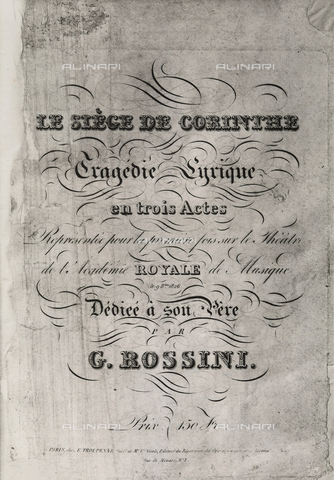 ALINARI
LE SIÈGE DE CORINTHE
Tragédie Lyrique
en trois Actes
Représentée pour la première fois sur le Théâtre
de l'Académie ROYALE de Musique
le 9 8bre 1826
Dédiée à son Père
PAR
G. ROSSINI.
Prix 150 F
PARIS, chez E. TROUPENAS
Rue de Ménars, Nº 3